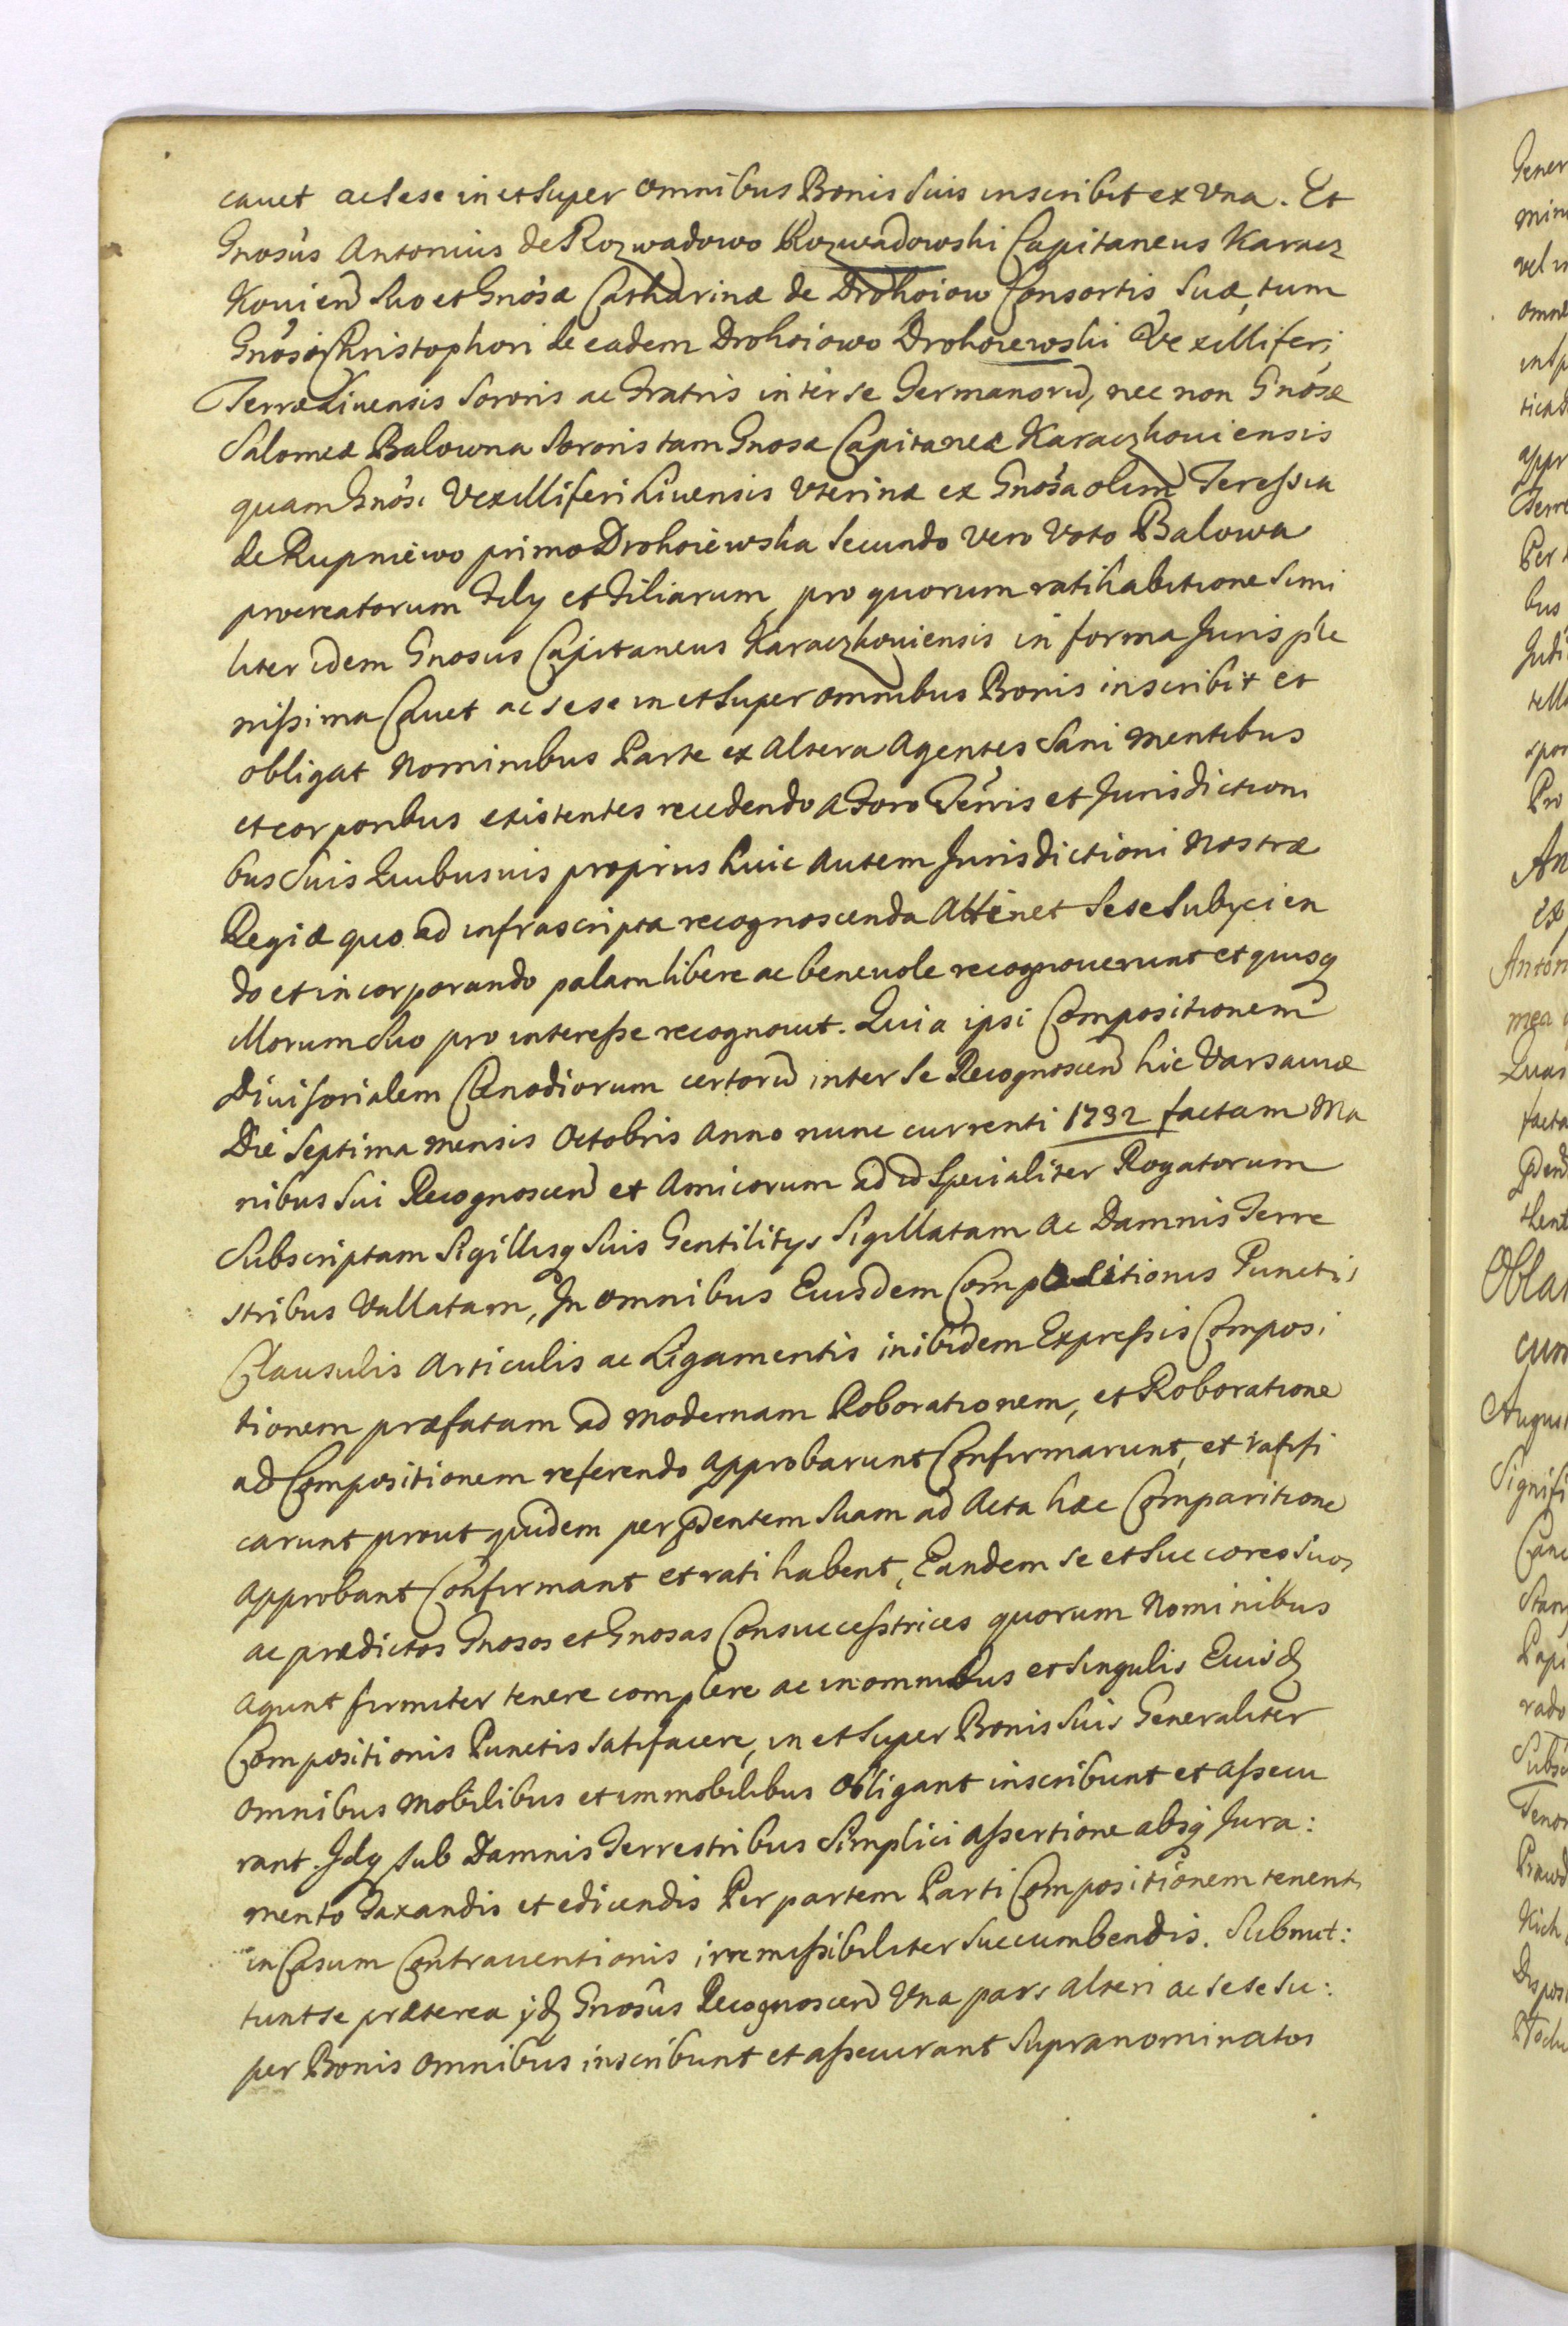 cauet ac sese in et super omnibus Bonis suis inscribit ex Vna. Et
Gnosus Antonius de Rozwadowo Rozwadowski Capitaneus Karacz
kouien suo et Gnosæ Catharinæ de Drohoiow Consortis suæ, tum
Gnosi Christophori de eadem Drohoiowo Drohoiewski Vexilliferi
Terræ Liuensis sororis ac Fratris inter se Germanorũ, nec non Gnosæ
Salomeæ Balowna sororis tam Gnosæ Capitaneæ Karaczkouiensis
quam Gnosi Vexilliferi Liuensis Vterinæ ex Gnosa olim Teressia
de Rupniewo primo Drohoiewska secundo vero Voto Balowa
procreatorum Filij et Filiarum, pro quorum ratihabitione simi
liter idem Gnosus Capitaneus Karaczkouiensis in forma Juris ple
nissima Cauet ac sese in et super omnibus Bonis inscribit et
obligat Nominibus Parte ex Altera Agentes Sani mentibus
et corporibus existentes recedendo a Foro Terris et Jurisdictioni
bus suis Quibusuis proprius huic autem Jurisdictioni Nostræ
Regiæ quo ad infrascripta recognoscenda Attinet sese subijcien
do et incorporando palam libere ac beneuole recognouerunt et quisq
Illorum suo pro interesse recognouit. Quia ipsi Compositionem
Diuisorialem Cænodiorum certorũ inter se Recognoscen hic Varsauiæ
Die Septima mensis Octobris Anno nunc currenti 1732 factam Ma
nibus sui Recognoscen et Amicorum ad id specialiter Rogatorum
Subscriptam Sigillisq suis Gentilitijs Sigillatam ac Damnis Terre
stribus Vallatam, In omnibus Eiusdem Compositionis Punctis
Clausulis Articulis ac Ligamentis inibidem Expressis Composi
tionem præfatam ad modernam Roborationem, et Roboratione
ad Compositionem referendo approbarunt Confirmarunt, et ratifi
carunt prout quidem per pdentem suam ad Acta hæc Comparitione
approbant Confirmant et rati habent, Eandem se et succores suos
ac prædictos Gnosos et Gnosas Consuccesstrices quorum Nominibus
agunt firmiter tenere complere ac in omnibus et singulis Euisd
Compositionis Punctis satifacere, in et super Bonis suis Generaliter
omnibus mobilibus et immobilibus obligant inscribunt et assecu
rant. Idq sub Damnis Terrestribus simplici assertione absq Jura:
mento Taxandis et edicendis Per partem Parti Compositionem tenent,
in Casum Contrauentionis irremissibiliter succumbendis. Submit:
tunt se præterea ijd Gnosus Recognoscen Vna pars alteri ac sese su:
per Bonis omnibus inscribunt et assecurant supranominatos